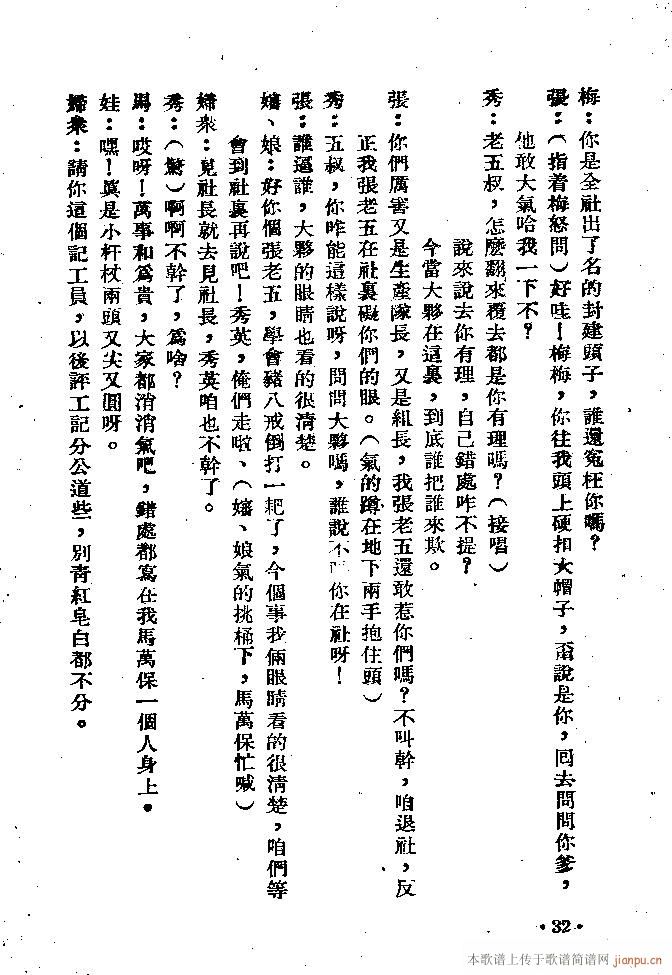 梅：你是全社出了名的封建頭子，誰還冤枉你嗎？
張：（指着梅怒問）好哇！梅梅，你往我頭上硬扣大帽子，甭說是你，回去問問你爹，
他敢大氣哈我一下不？
秀：老五叔，怎麼翻來覆去都是你有理嗎？（接唱）
說來說去你有理，自己錯處咋不提？
今當大夥在這裏，到底誰把誰來欺。
張：你們厲害又是生產隊長，又是組長，我張老五還敢惹你們嗎？不叫幹，咱退社，反
正我張老五在社裏礙你們的眼。（氣的蹲在地下兩手抱住頭）
秀：五叔，你咋能這樣說呀，問問大夥嗎，誰說不 你在社呀！
張：誰逼誰，大夥的眼睛也看的很淸楚。
嬸、娘：好你個張老五，學會豬八戒倒打一耙了，今個事我倆眼睛看的很淸楚，咱們等
會到社裏再說吧！秀英，俺們走啦、（嬸、娘氣的挑桶下，馬萬保忙喊）
婦衆：見社長就去見社長，秀英咱也不幹了。
秀：（驚）啊啊不幹了，爲啥？
馬：哎呀！萬事和爲貴，大家都消消氣吧，錯處都寫在我馬萬保一個人身上。
娃：嘿！眞是小杆杖兩頭又尖又圓呀。
婦衆：請你這個記工員，以後評工記分公道些，別靑紅皂白都不分。
·32·
本歌谱上传于歌谱简谱网
jianpu.cn